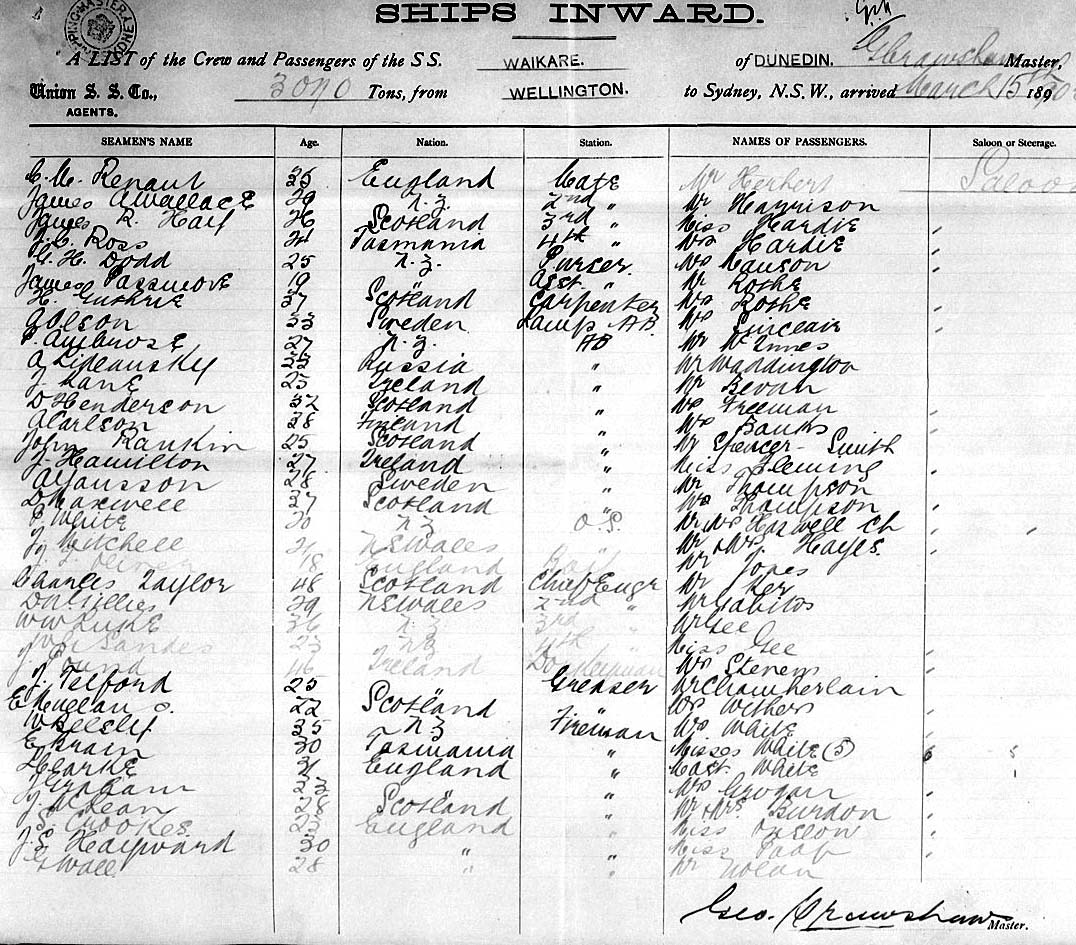 SHIPS INWARD.
A LIST of the Crew and Passengers of the S S. WAIKARE. of DUNEDIN. G Crawshaw Master,
Union S. S. Co., 3070 Tons, from WELLINGTON. to Sydney, N.S.W., arrived March 15th 189
AGENTS.
SEAMEN'S NAME Age. Nation. Station. NAMES OF PASSENGERS. Saloon or Steerage.
Renaut 35 England Mate Mr Herbert Saloon
James A Wallace 29 N.Z. 2nd " Mr Harrison
James R. Haif 26 Scotland 3rd " Miss Hardie
Ross 24 Tasmania 4th " Mrs Hardie
G. H. Dodd 25 N.Z. Purser. Mrs Manson
James Passmore 19 " Asst. " Mr Rothe
H. Guthrie 37 Scotland Carpenter Mrs Rothe
Olson 23 Sweden Lamp AB. Mrs Sinclair
Ambrose 27 N.Z. AB Mr McInnes
A Lideansky Russia " Mr Waddington
J. Lane 25 Ireland " Mr Bevan
D Henderson 32 Scotland " Mrs Freeman
A Carlson 38 Finland " Mrs Banks
John Rankin 25 Scotland " Mr Spencer-Smith
J. Hamilton 27 Ireland " Miss Fleming
A Jansson 28 Sweden " Mr Thompson
D Maxwell 37 Scotland " Mrs Thompson
White 20 N.Z O.S. Mr & Mrs Haswell Ch
J Mitchell 21 NSWales Mr & Mrs Hayes.
Oliver 18 England Mr Jones
Charles Taylor 48 Scotland Chief Engr Mr Ker
D Gillies 29 NSWales 2nd " Mr Gabites
W W Luke 36 N.Z 3rd " Mr Gee
Sandes 23 NZ 4th Miss Gee
J. Pound 46 Ireland Donkeyman Mrs Stevens
J. Telford 25 " Greaser Mr Chamberlain
22 Scotland " Mrs Withers
W Beesly 35 N.Z Fireman Mrs White
E Brain 30 Tasmania " Misses White (5)
Hearne 21 England " Mast. White
J Graham " " Mrs Grogan
J. McLean 28 Scotland " Mr & Mrs Burdon
Crookes. England " Miss Onslow
J. S. Hayward 30 " " Miss
Wall 28 " " Mr Nolan
Geo. Crawshaw
Master.